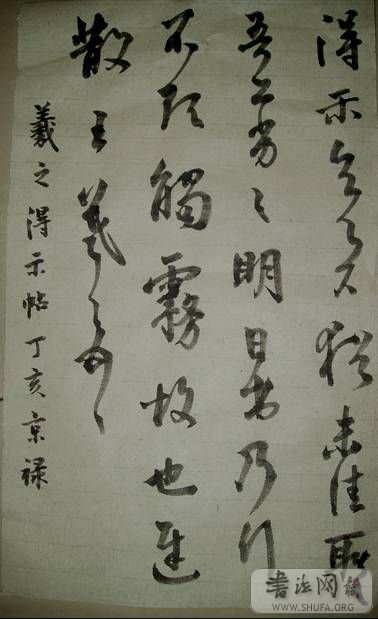 得示知足下猶未佳耿
吾亦劣々明日出乃行
不欲觸霧故也遲
散王羲之頓首
羲之得示帖丁亥京禄
书法网
WWW.SHUFA.ORG